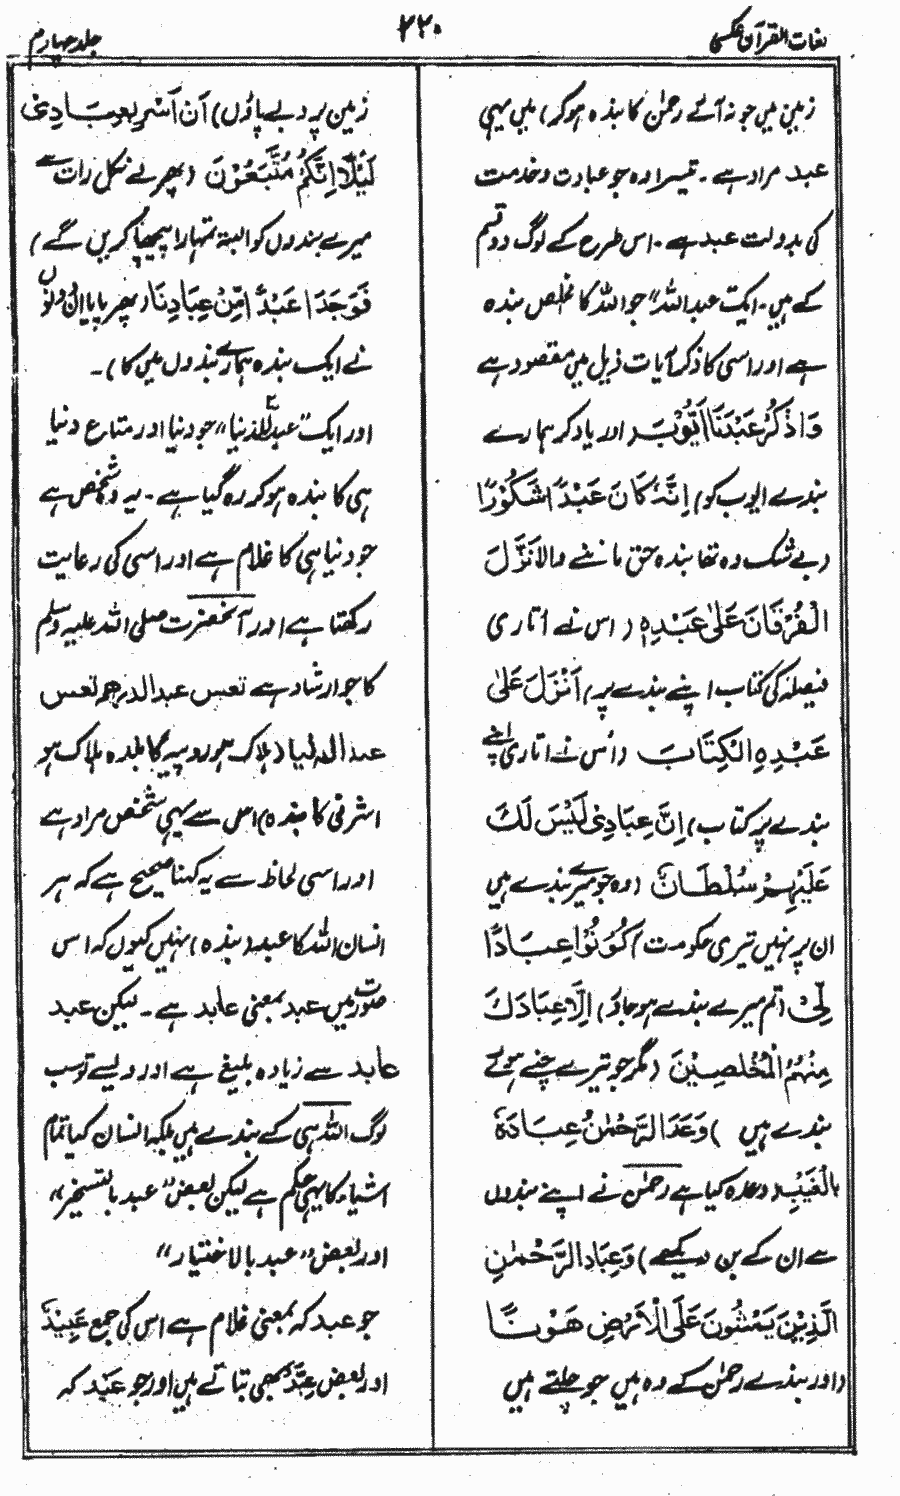 لغات القرآن عکسی
۲۲۰
جلد چہارم
زمین میں جو نہ آئے رحمٰن کا بندہ ہو کر) میں یہی
عبد مراد ہے۔ تیسرا وہ جو عبادت و خدمت
کی بدولت عبد ہے۔ اس طرح کے لوگ دو قسم
کے ہیں۔ ایک عبد اللہ" جو اللہ کا مخلص بندہ
ہے اور اسی کا ذکر آیات ذیل میں مقصود ہے
وَاذْكُرْ عَبْدَنَا اَيُّوْبَ (اور یاد کر ہمارے
بندے ایوب کو) اِنَّهٗ كَانَ عَبْدًا شَكُوْرًا
(بے شک وہ تھا بندہ حق ماننے والا) نَزَّلَ
الْفُرْقَانَ عَلٰى عَبْدِهٖ (اس نے اتاری
فیصلہ کی کتاب اپنے بندے پر) اَنْزَلَ عَلٰى
عَبْدِهِ الْكِتَابَ (اُس نے اتاری اپنے
بندے پر کتاب) اِنَّ عِبَادِىْ لَيْسَ لَكَ
عَلَيْهِمْ سُلْطَانٌ (وہ جو میرے بندے ہیں
ان پر نہیں تیری حکومت) كُوْنُوْا عِبَادًا
لِّىْ (تم میرے بندے ہو جاؤ) اِلَّا عِبَادَكَ
مِنْهُمُ الْمُخْلَصِيْنَ (مگر جو تیرے چنے ہوئے
بندے ہیں) وَعَدَ الرَّحْمٰنُ عِبَادَهٗ
بِالْغَيْبِ (وعدہ کیا ہے رحمٰن نے اپنے بندوں
سے ان کے بن دیکھے) وَعِبَادُ الرَّحْمٰنِ
الَّذِيْنَ يَمْشُوْنَ عَلَى الْاَرْضِ هَوْنًا
(اور بندے رحمٰن کے وہ ہیں جو چلتے ہیں
زمین پر دبے پاؤں) اَنْ اَسْرِ بِعِبَادِىْ
لَيْلًا اِنَّكُمْ مُّتَّبَعُوْنَ (پھر لے نکل رات سے
میرے بندوں کو البتہ تمہارا پیچھا کریں گے)
فَوَجَدَا عَبْدًا مِّنْ عِبَادِنَا (پھر پایا ان دونوں
نے ایک بندہ ہمارے بندوں میں کا)۔
اور ایک "عبد للدنیا" جو دنیا اور متاع دنیا
ہی کا بندہ ہو کر رہ گیا ہے۔ یہ وہ شخص ہے
جو دنیا ہی کا غلام ہے اور اسی کی رعایت
رکھتا ہے اور آنحضرت صلی اللہ علیہ وسلم
کا جو ارشاد ہے تعس عبد الدرهم تعس
عبد الدنیا (ہلاک ہو روپیہ کا بندہ ہلاک ہو
اشرفی کا بندہ) اس سے یہی شخص مراد ہے
اور اسی لحاظ سے یہ کہنا صحیح ہے کہ ہر
انسان اللہ کا عبد (بندہ) نہیں کیوں کہ اس
صورت میں عبد بمعنی عابد ہے۔ لیکن عبد
عابد سے زیادہ بلیغ ہے اور ویسے تو سب
لوگ اللہ ہی کے بندے ہیں بلکہ انسان کیا تمام
اشیاء کا یہی حکم ہے لیکن بعض "عبد بالتسخیر"
اور بعض "عبد بالاختیار"
جو عبد کہ بمعنی غلام ہے اس کی جمع عَبِيْدٌ
اور بعض عِبِدّٰى بھی بتاتے ہیں اور جو عَبْد کہ